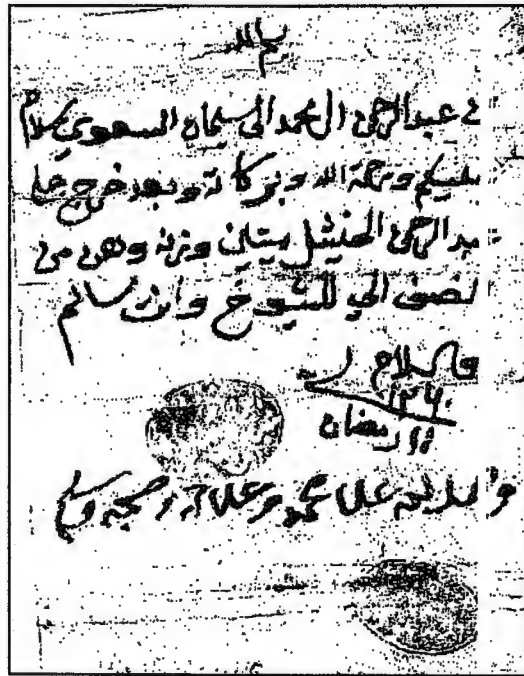 بسم الله
من عبد الرحمن ال محمد الى سليمان السعوي سلام
عليكم ورحمة الله وبركاته وبعد خرج حا
عبد الرحمن الحنيشل ميتين وزنه وهن من
نصف الي للشيوخ وانت سالم
والسلام
١٢٦٠
رمضان
وصلى الله على محمد وعلى آله وصحبه وسلم